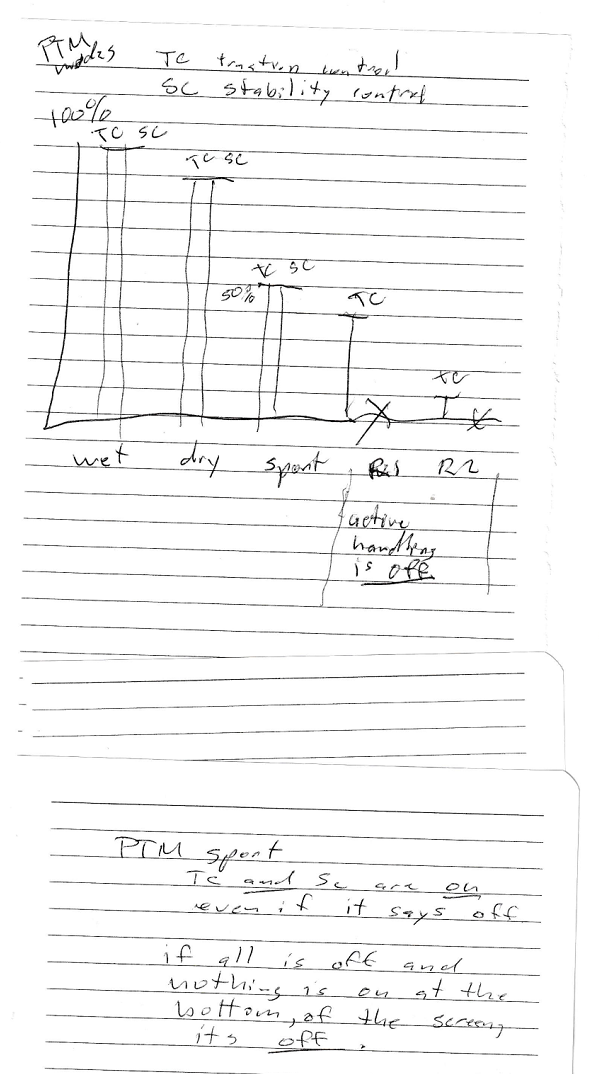 PTM modes
TC traction control
SC stability control
100%
TC SC
TC SC
TC SC
50%
TC
TC
wet dry sport R1 R2
active
handling
is off
PTM sport
TC and Sc are on
even if it says off
if all is off and
nothing is on at the
bottom, of the screen,
its off.